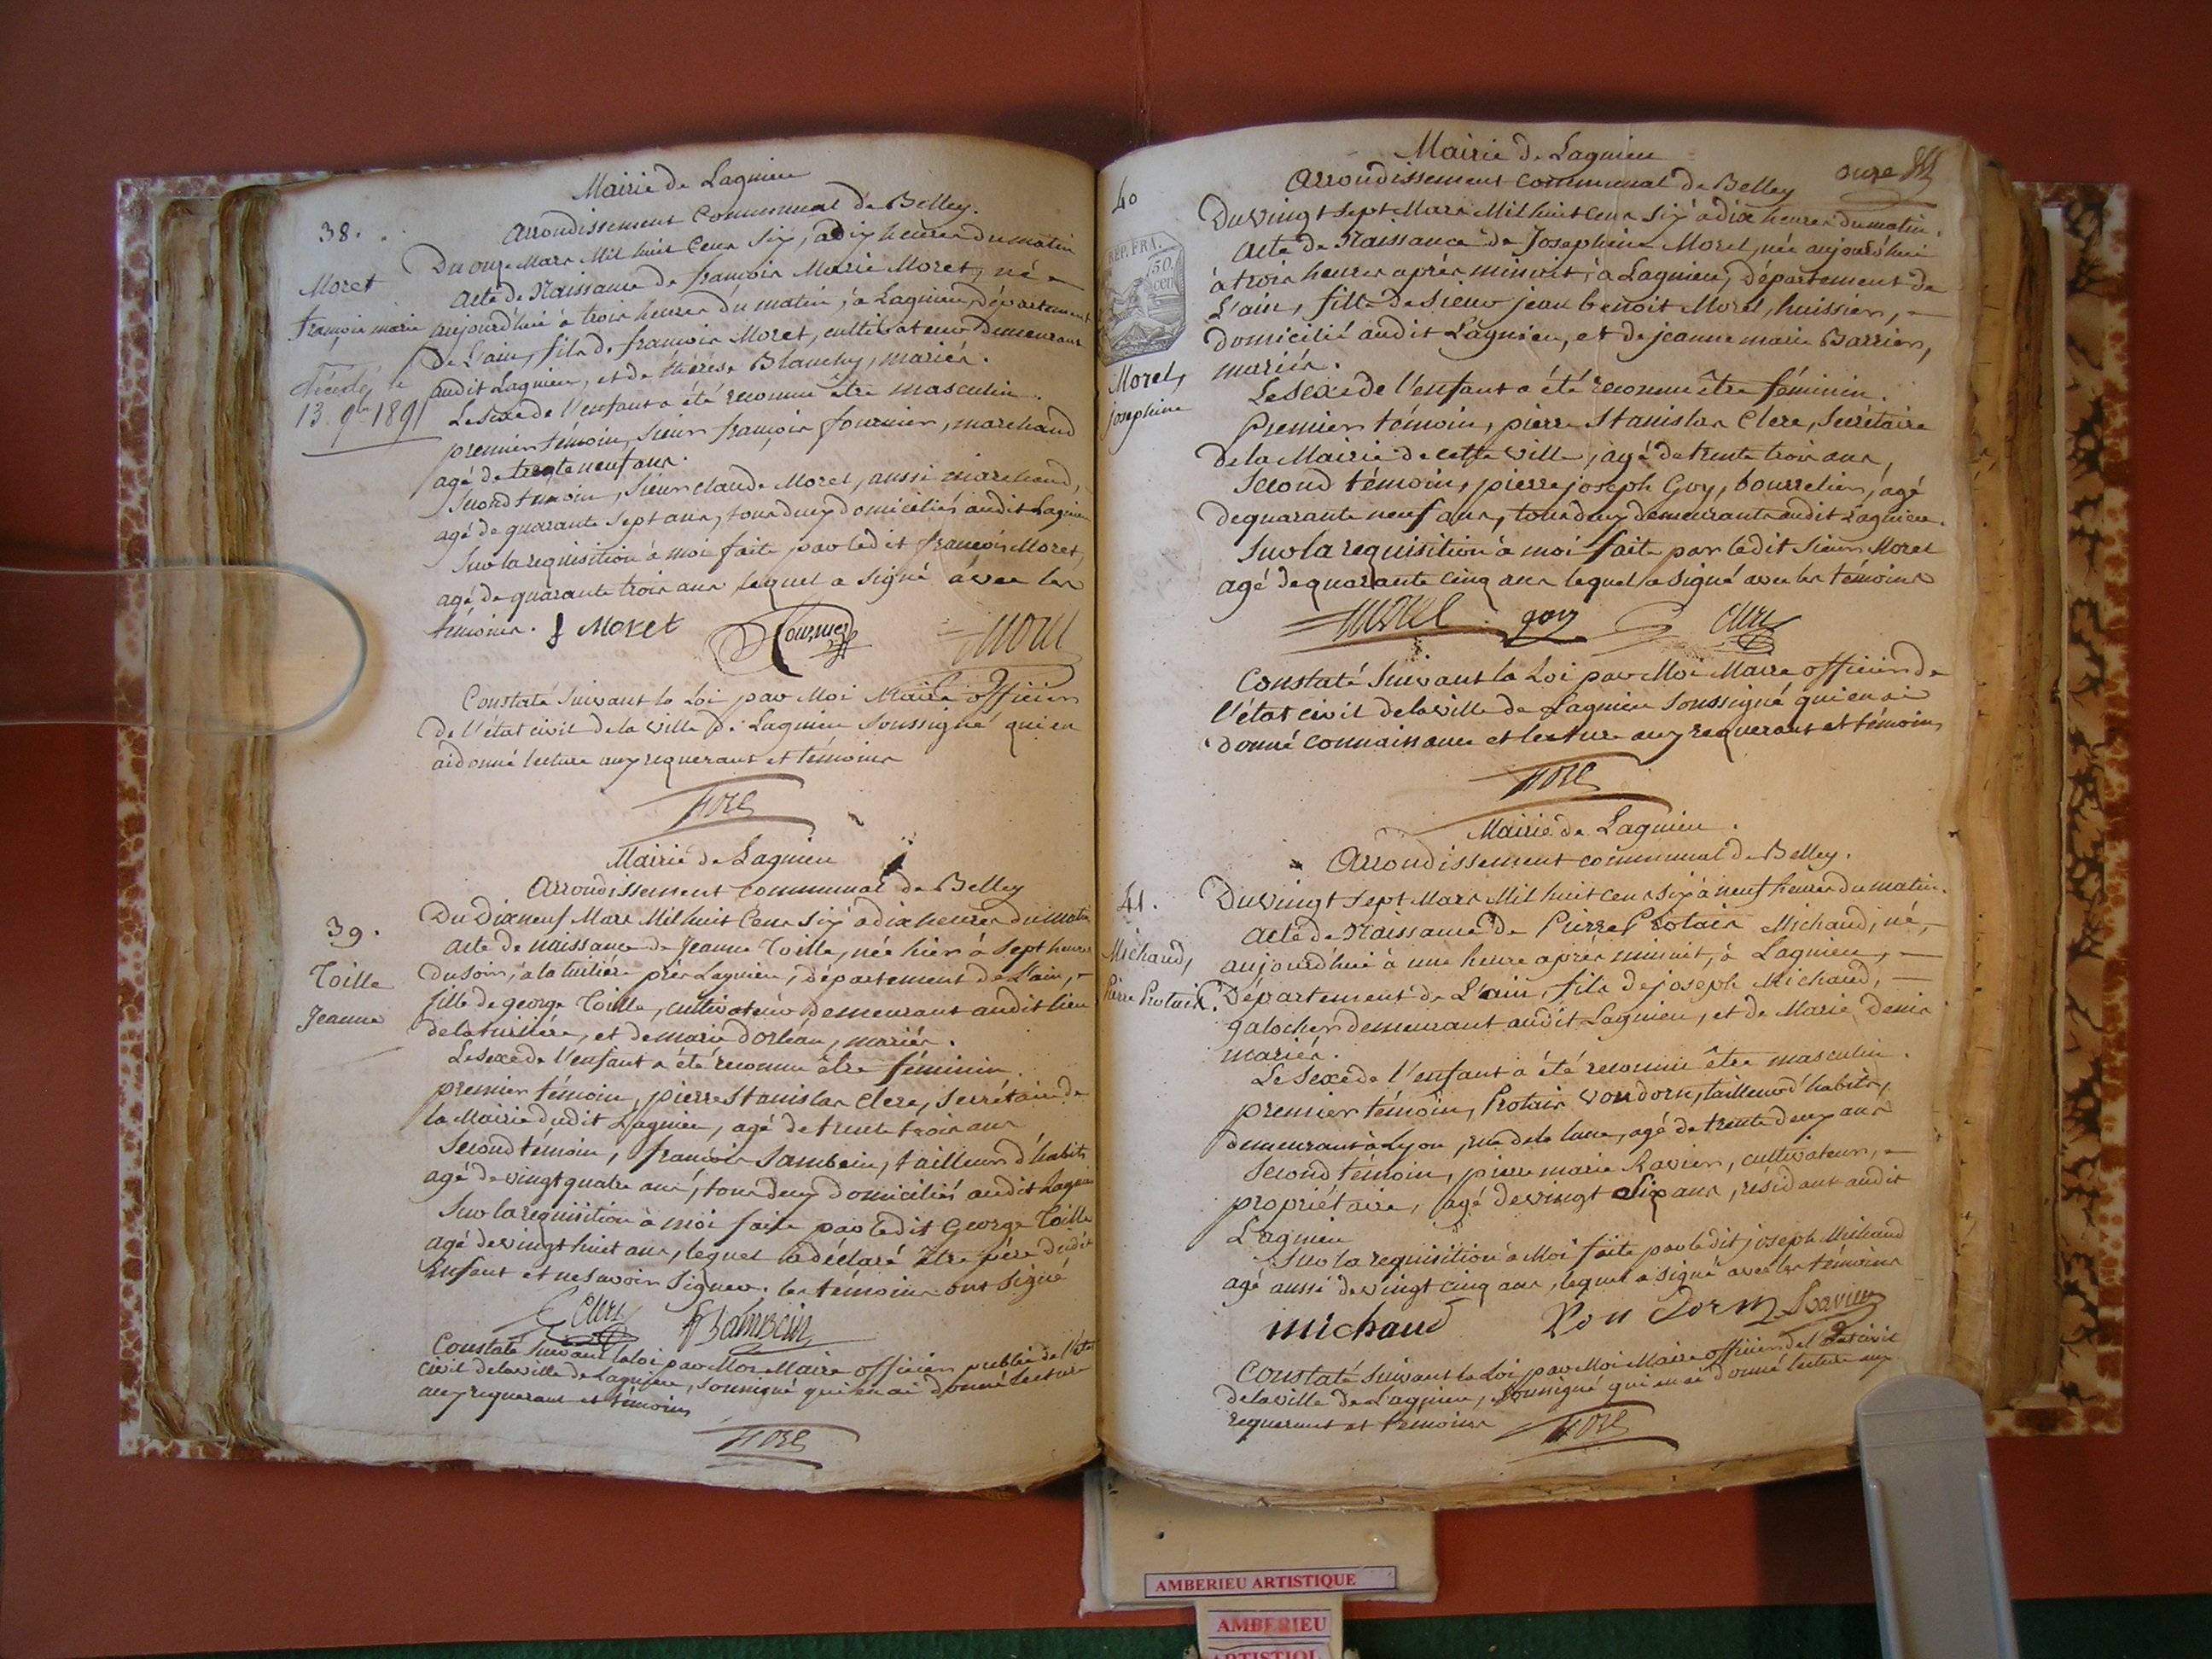 Mairie de Lagnieu
Arrondissement Communal de Belley.
38.
Moret
françois marie
Décédé le
13 9bre 1891
Du onze Mars Mil huit Cens Six, à dix heures du matin
Acte de Naissance de françois Marie Moret, né
aujourd'hui à trois heures du matin, à Lagnieu, département
De L'ain, fils de françois Moret, cultivateur demeurant
audit Lagnieu, et de thérèse Blanchy, mariés.
Le Sexe de l'enfant a été reconnu être masculin.
premier témoin, Sieur françois fournier, marchand
agé de trente neuf ans.
Second témoin, Sieur claude Morel, aussi marchand,
agé de quarante Sept ans, tous deux domiciliés audit Lagnieu
Sur la requisition à moi faite par ledit françois Moret,
agé de quarante trois ans lequel a Signé avec les
témoins. f Moret Fournier Morel
Constaté Suivant la Loi par Moi Maire officier
De l'état civil de la ville de Lagnieu Soussigné qui en
ai donné lecture aux requerant et témoins
Mairie de Lagnieu
Arrondissement communal de Belley
39.
Toille
Jeanne
Du Dix neuf Mars Mil huit Cens Six à dix heures du matin
Acte de naissance de Jeanne Toille, née hier à Sept heures
du Soir, à la tuilière près Lagnieu, Département de L'ain,
fille de george Toille, cultivateur demeurant audit lieu
de la tuilière, et de marie dorléan, mariés.
Le sexe de l'enfant a été reconnu être féminin.
premier témoin, pierre Stanislas Clerc, Secrétaire de
la Mairie dudit Lagnieu, agé de trente trois ans
Second témoin, françois Sambein, tailleur d'habits
agé de vingt quatre ans, tous deux domiciliés audit Lagnieu
Sur la requisition à moi faite par ledit George Toille
agé de vingt huit ans, lequel a déclaré être père dudit
Enfant et ne Savoir Signer. les témoins ont Signé
Clerc f Sambein
Constaté Suivant la loi par Moi Maire officier public de l'état
civil de la ville de Lagnieu, Soussigné qui en ai donné lecture
aux requerant et témoins
Mairie de Lagnieu
onze
Arrondissement communal de Belley
40
REP. FRA.
50
cen
Morel,
josephine
Du vingt Sept Mars Mil huit Cens Six à dix heures du matin.
Acte de Naissance de Josephine Morel, née aujourd'hui
à trois heures après minuit, à Lagnieu, Département de
L'ain, fille de Sieur jean benoit Morel, huissier,
domicilié audit Lagnieu, et de jeanne marie Barrier,
mariés.
Le Sexe de l'enfant a été reconnu être féminin.
Premier témoin, pierre Stanislas Clerc, Secrétaire
de la Mairie de cette ville, agé de trente trois ans,
Second témoin, pierre joseph Goy, bourrelier, agé
de quarante neuf ans, tous deux demeurants audit Lagnieu.
Sur la requisition à moi faite par ledit Sieur Morel
agé de quarante Cinq ans lequel a signé avec les témoins
Morel goy Clerc
Constaté Suivant la Loi par Moi Maire officier de
l'état civil de la ville de Lagnieu Soussigné qui en ai
donné connaissance et lecture aux requerant et témoins
Mairie de Lagnieu.
Arrondissement communal de Belley.
41.
Michaud,
Pierre Protais.
Du vingt Sept Mars Mil huit Cens Six à neuf heures du matin.
Acte de Naissance de Pierre Protais Michaud, né,
aujourdhui à une heure après minuit, à Lagnieu,
Département de L'ain, fils de joseph Michaud,
galocher demeurant audit Lagnieu, et de Marie Denis
mariés.
Le Sexe de l'enfant a été reconnu être masculin.
premier témoin, Protais Vondorn, tailleur d'habits,
demeurant à Lyon, rue de la lune, agé de trente deux ans
Second témoin, pierre marie Ravier, cultivateur,
propriétaire, agé de vingt Six ans, résidant audit
Lagnieu
Sur la requisition à Moi faite par ledit joseph Michaud
agé aussi de vingt cinq ans, lequel a signé avec les témoins
michaud Von Dorn Ravier
Constaté Suivant la Loi par Moi Maire officier de l'état civil
de la ville de Lagnieu, Soussigné qui en ai donné lecture aux
requerant et témoins
AMBERIEU ARTISTIQUE
AMBERIEU
ARTISTIQ